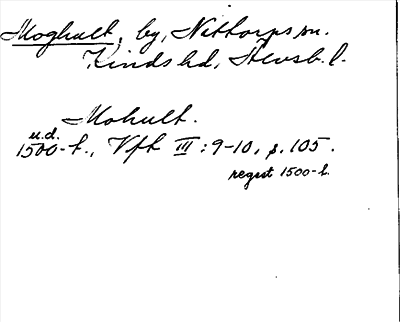 Moghult, by, Nittorps sn.
Kinds hd, Älvsb. l.
Mohult.
u.d.
1500-t., Vfk III : 9-10, s. 105.
regest 1500-t.